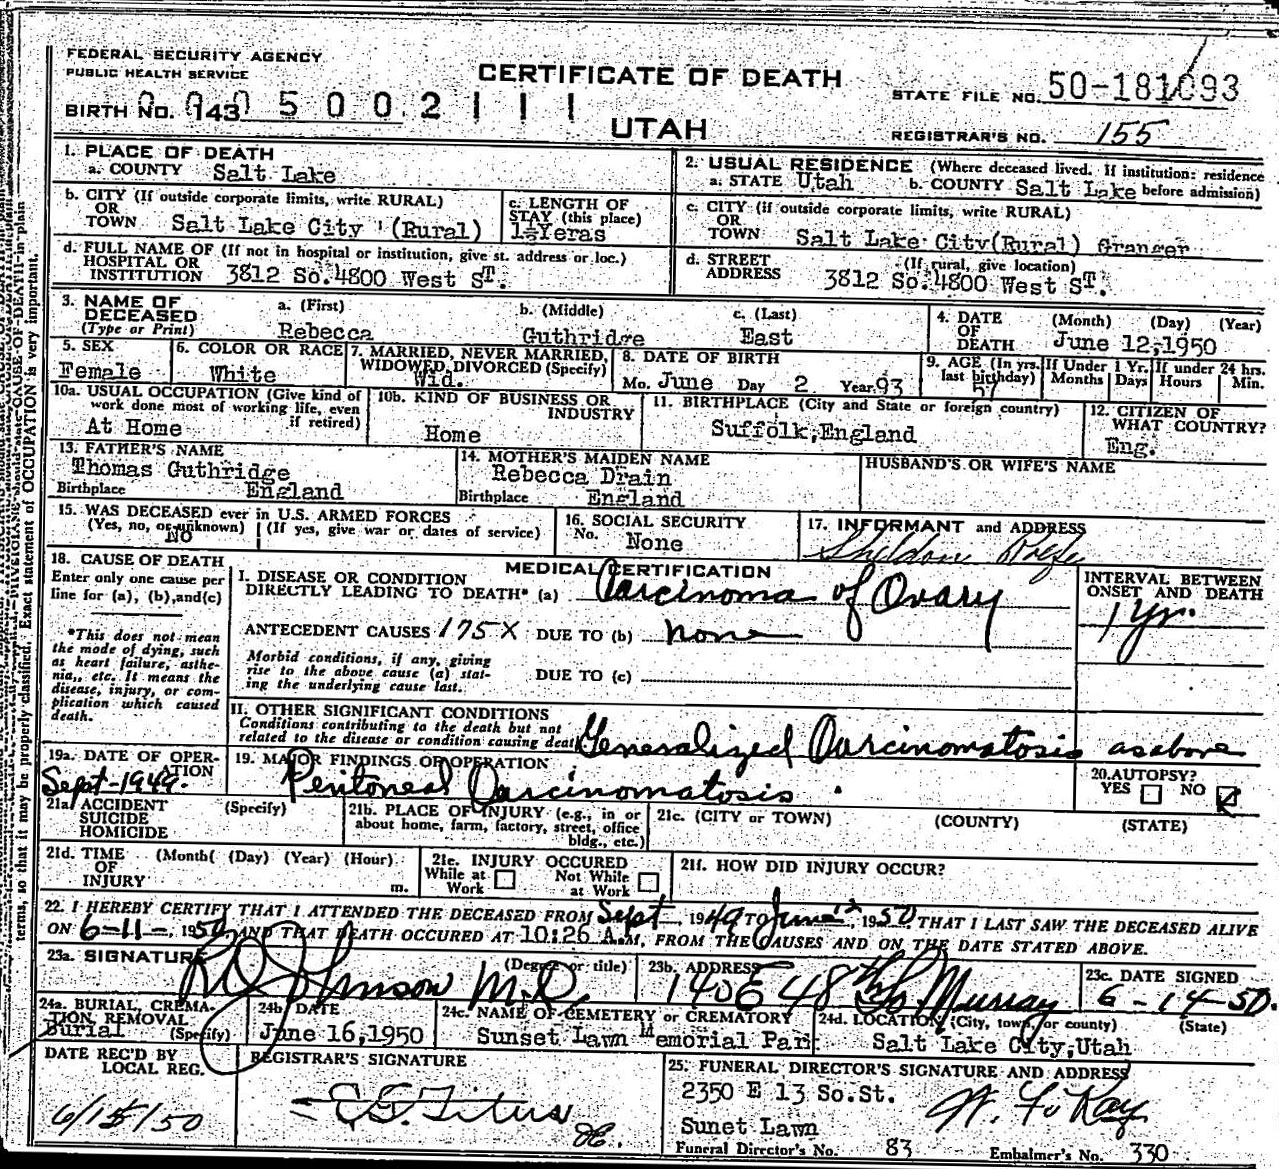 FEDERAL SECURITY AGENCY
PUBLIC HEALTH SERVICE
CERTIFICATE OF DEATH
STATE FILE NO. 50-181093
BIRTH NO. 143 5 0 0 2 1 1 1
UTAH
REGISTRAR'S NO. 155
1. PLACE OF DEATH
a. COUNTY Salt Lake
2. USUAL RESIDENCE (Where deceased lived. If institution: residence
a. STATE Utah b. COUNTY Salt Lake before admission)
b. CITY (If outside corporate limits, write RURAL)
OR
TOWN Salt Lake City (Rural)
c. LENGTH OF
STAY (this place)
1½Yeras
c. CITY (if outside corporate limits, write RURAL)
OR
TOWN Salt Lake City(Rural) Granger
d. FULL NAME OF (If not in hospital or institution, give st. address or loc.)
HOSPITAL OR
INSTITUTION 3812 So.4800 West ST.
d. STREET (If rural, give location)
ADDRESS 3812 So.4800 West ST.
3. NAME OF DECEASED
(Type or Print)
a. (First) b. (Middle) c. (Last)
Rebecca Guthridge East
4. DATE OF DEATH (Month) (Day) (Year)
June 12,1950
5. SEX
Female
6. COLOR OR RACE
White
7. MARRIED, NEVER MARRIED,
WIDOWED, DIVORCED (Specify)
Wid.
8. DATE OF BIRTH
Mo. June Day 2 Year 93
9. AGE (In yrs. last birthday)
57
If Under 1 Yr. If under 24 hrs.
Months Days Hours Min.
10a. USUAL OCCUPATION (Give kind of
work done most of working life, even
if retired)
At Home
10b. KIND OF BUSINESS OR
INDUSTRY
Home
11. BIRTHPLACE (City and State or foreign country)
Suffolk,England
12. CITIZEN OF
WHAT COUNTRY?
Eng.
13. FATHER'S NAME
Thomas Guthridge
Birthplace England
14. MOTHER'S MAIDEN NAME
Rebecca Drain
Birthplace England
HUSBAND'S OR WIFE'S NAME
15. WAS DECEASED ever in U.S. ARMED FORCES
(Yes, no, or unknown) (If yes, give war or dates of service)
No
16. SOCIAL SECURITY
No. None
17. INFORMANT and ADDRESS
Sheldon
18. CAUSE OF DEATH
Enter only one cause per
line for (a), (b), and (c)
*This does not mean
the mode of dying, such
as heart failure, asthe-
nia,, etc. It means the
disease, injury, or com-
plication which caused
death.
MEDICAL CERTIFICATION
I. DISEASE OR CONDITION
DIRECTLY LEADING TO DEATH* (a) Carcinoma of Ovary
INTERVAL BETWEEN
ONSET AND DEATH
1 yr.
ANTECEDENT CAUSES 175X DUE TO (b) none
Morbid conditions, if any, giving
rise to the above cause (a) stat-
ing the underlying cause last.
DUE TO (c)
II. OTHER SIGNIFICANT CONDITIONS
Conditions contributing to the death but not
related to the disease or condition causing death
Generalized Carcinomatosis as above
19a. DATE OF OPER-
ATION
Sept-1949.
19. MAJOR FINDINGS OF OPERATION
Peritoneal Carcinomatosis.
20. AUTOPSY?
YES NO
21a. ACCIDENT (Specify)
SUICIDE
HOMICIDE
21b. PLACE OF INJURY (e.g., in or
about home, farm, factory, street, office
bldg., etc.)
21c. (CITY or TOWN) (COUNTY) (STATE)
21d. TIME (Month( (Day) (Year) (Hour)
OF
INJURY m.
21e. INJURY OCCURED
While at Work Not While at Work
21f. HOW DID INJURY OCCUR?
22. I HEREBY CERTIFY THAT I ATTENDED THE DECEASED FROM Sept 1949 TO June 12, 1950 THAT I LAST SAW THE DECEASED ALIVE
ON 6-11-, 1950, AND THAT DEATH OCCURED AT 10:26 A.M, FROM THE CAUSES AND ON THE DATE STATED ABOVE.
23a. SIGNATURE (Degree or title)
Johnson M.D.
23b. ADDRESS
140 E 48th So Murray
23c. DATE SIGNED
6-14-50.
24a. BURIAL, CREMA-
TION REMOVAL
Burial (Specify)
24b DATE
June 16,1950
24c. NAME OF CEMETERY or CREMATORY
Sunset Lawn Memorial Park
24d. LOCATION (City, town, or county) (State)
Salt Lake City,Utah
DATE REC'D BY
LOCAL REG.
6/15/50
REGISTRAR'S SIGNATURE
25. FUNERAL DIRECTOR'S SIGNATURE AND ADDRESS
2350 E 13 So.St.
Sunet Lawn
Funeral Director's No. 83 Embalmer's No. 330
terms, so that it may be properly classified. Exact statement of OCCUPATION is very important.